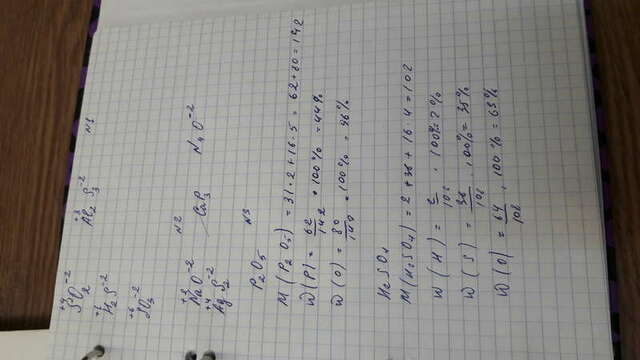 +4 SO2 -2   +3 Al2 S3 -2   N1
+1 H2 S -2
+6 SO3 -2
N2
+2 Na O -2   CaP3   N4 O -2
+4 Ag S2 -2
P2O5   N3
M(P2O5) = 31·2+16·5 = 62+80=142
W(P) = 62/142 · 100% = 44%
W(O) = 80/140 · 100% = 96%
H2SO4
M(H2SO4) = 2+36+16·4=102
W(H) = 2/102 · 100%=2%
W(S) = 36/102 · 100%=35%
W(O) = 64/102 · 100%=63%